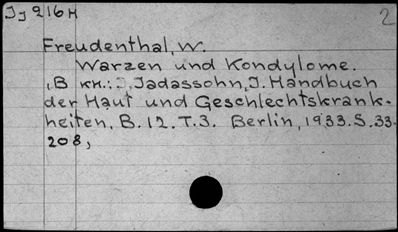 Jj 216 H
2
Freudenthal, W.
Warzen und Kondylome.
,B кн.: J. Jadassohn, J. Handbuch
der Haut und Geschlechtskrank-
heiten, B. 12. T.3. Berlin, 1933. S. 33-
208,